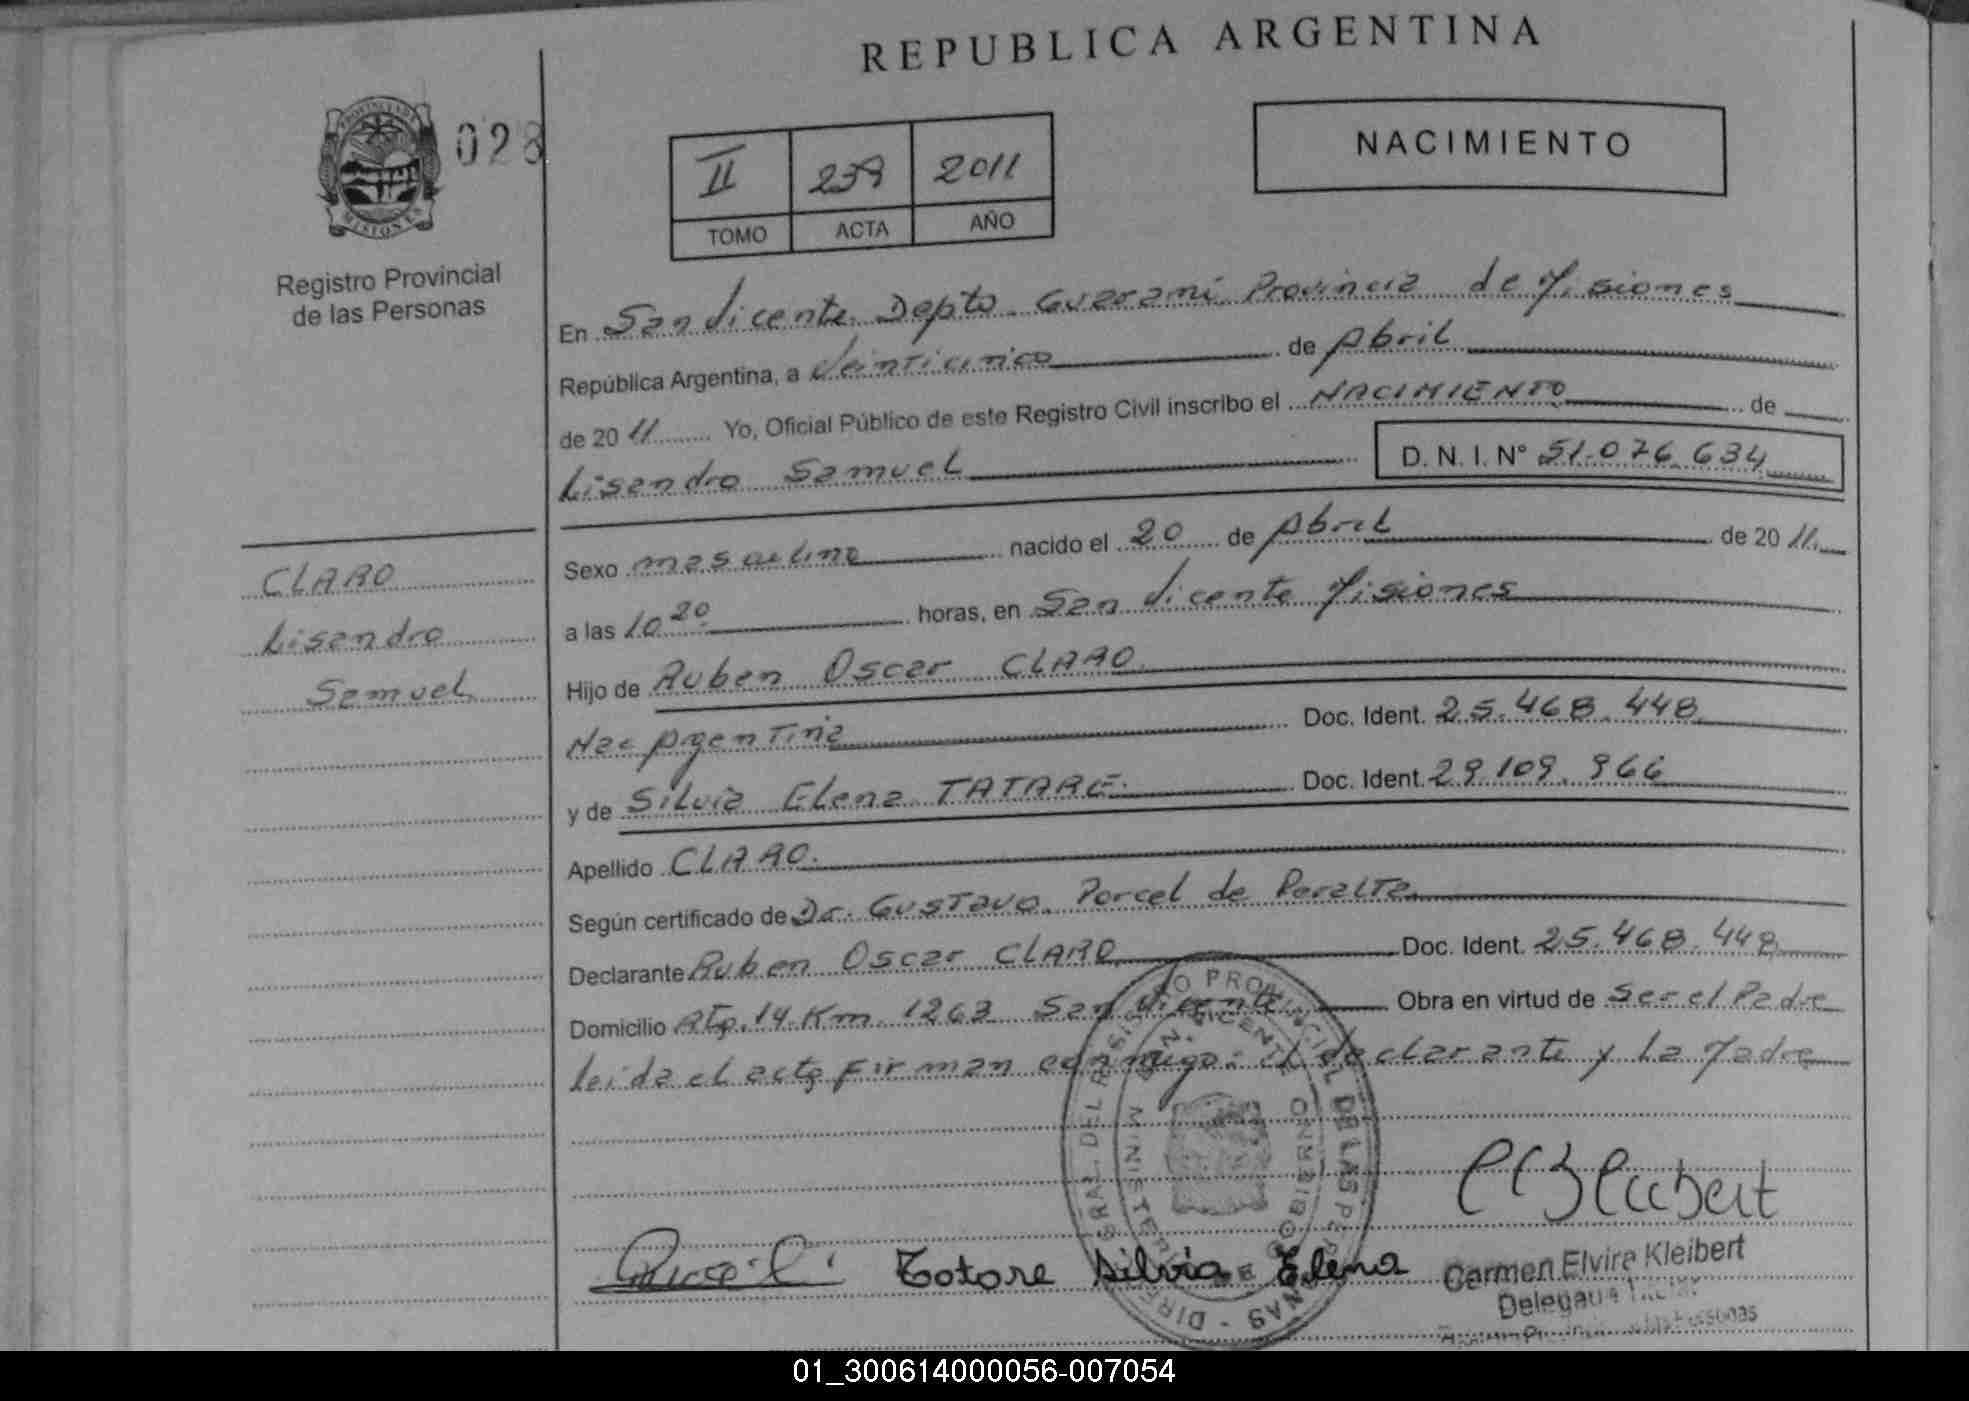 REPUBLICA ARGENTINA
028
NACIMIENTO
II 239 2011
TOMO ACTA AÑO
PROVINCIA DE MISIONES
Registro Provincial
de las Personas
En San Vicente Depto. Guarani Provincia de Misiones
República Argentina, a Veinticinco de Abril
de 20 11 Yo, Oficial Público de este Registro Civil inscribo el NACIMIENTO de
Lisandro Samuel D. N. I. N° 51.076.634
CLARO
Lisandro
Samuel
Sexo masculino nacido el 20 de Abril de 20 11
a las 10 20 horas, en San Vicente Misiones
Hijo de Ruben Oscar CLARO
Nac Argentina Doc. Ident. 25.468.448
y de Silvia Elena TATARE. Doc. Ident. 29.109.966
Apellido CLARO.
Según certificado de Dr. Gustavo Porcel de Peralta
Declarante Ruben Oscar CLARO Doc. Ident. 25.468.448
Domicilio Rta. 14 Km 1263 San Vicente Obra en virtud de Ser el Padre
leida el acta firman conmigo: el declarante y la Madre
DIRECCION GENERAL DEL REGISTRO PROVINCIAL DE LAS PERSONAS
SAN VICENTE
MINISTERIO DE GOBIERNO
Totore Silvia Elena
Carmen Elvira Kleibert
Delegada Titular
01_300614000056-007054